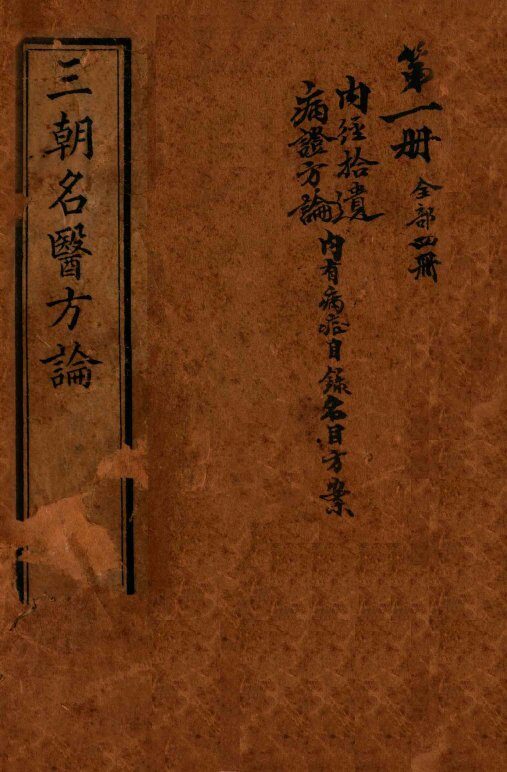 第一册 全部四冊
内經拾遺
病證方論
内有病症目錄名目方案
三朝名醫方論